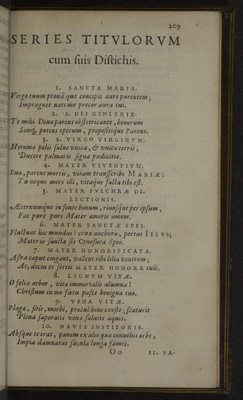 209
SERIES TITVLORVM
cum suis Distichis.
1. SANCTA MARIA.
Virgo tuum pronâ quæ concipis aure parentem;
Impragnet nate me precor aura tui.
2. S. DEI GENITRIX.
Te mihi Diua parens obstetricante, bonorum
Simq; potens operum, propositique Parens.
3. S. VIRGO VIRGINVM.
Heroina polis salue vnica, & vnica terris,
Ducere palmaris signa pudicitiæ.
4. MATER VIVENTIVM.
Eua, parens mortis, vitam transscribe MARIÆ:
Tu neque mors illi, vitaque facta tibi est.
5. MATER PVLCHRÆ DILECTIONIS.
Æternumque in fonte bonum, riuosque per ipsum,
Fac pure pure Mater amoris amem.
6. MATER SANCTÆ SPEI.
Fluctuat hic mundus: crux anchora, portus IESVS;
Mater io sancta sis Cynosura spei.
7. MATER HONORIFICATA.
Astra caput cingunt, vallent tibi lilia ventrem;
At, decus ex sertis MATER HONORA tuis.
8. LIGNVM VITÆ.
O felix arbor, vitæ immortalis alumna!
Christum in me fœtu pasce benigna tuo.
9. VENA VITÆ.
Plaga, sitis, morbi, procul hinc exeste; scatescit
Plena superatis vena salutis aquis.
10. NAVIS INSTITORIS.
Absque te erat, panem ex alio quæ conuehis orbe,
Impia damnarat sæcula longa fames.
Oo
11. SA-